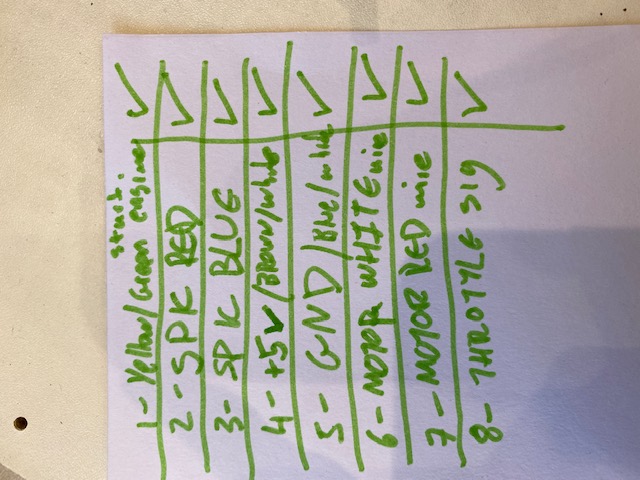 start.
1- Yellow/Green engine ✓
2- SPK RED ✓
3- SPK BLUE ✓
4- +5V /BROWN/white ✓
5- GND /Blue/white ✓
6- MOTOR WHITE wire ✓
7- MOTOR RED wire ✓
8- THROTTLE sig ✓